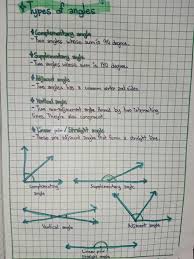 Types of angles
Complementary angle
- Two angles whose sum is 90 degree.
Supplementary angle
- Two angles whose sum is 180 degree.
Adjacent angle
- Two angles has a common vertex and side.
Vertical angle
- Two non-adjacent angle formed by two intersecting
lines. They're also congruent.
Linear pair / Straight angle
- These are adjacent angles that form a straight line.
Complementary
angle
Supplementary angle
Vertical angle
Adjacent angle
Linear pair / Straight angle